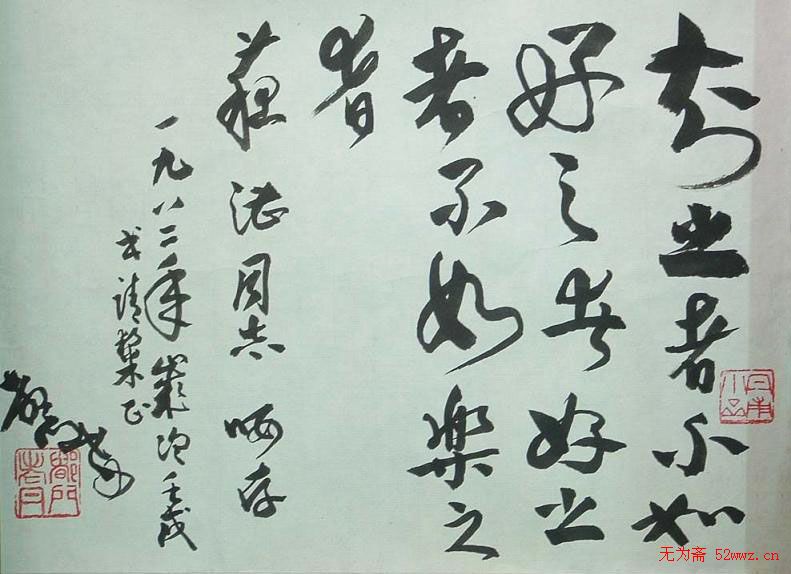 知之者不如
好之者好之
者不如樂之
者
同志 哂存
一九八二年歲次壬戌
无为斋 52wwz.cn